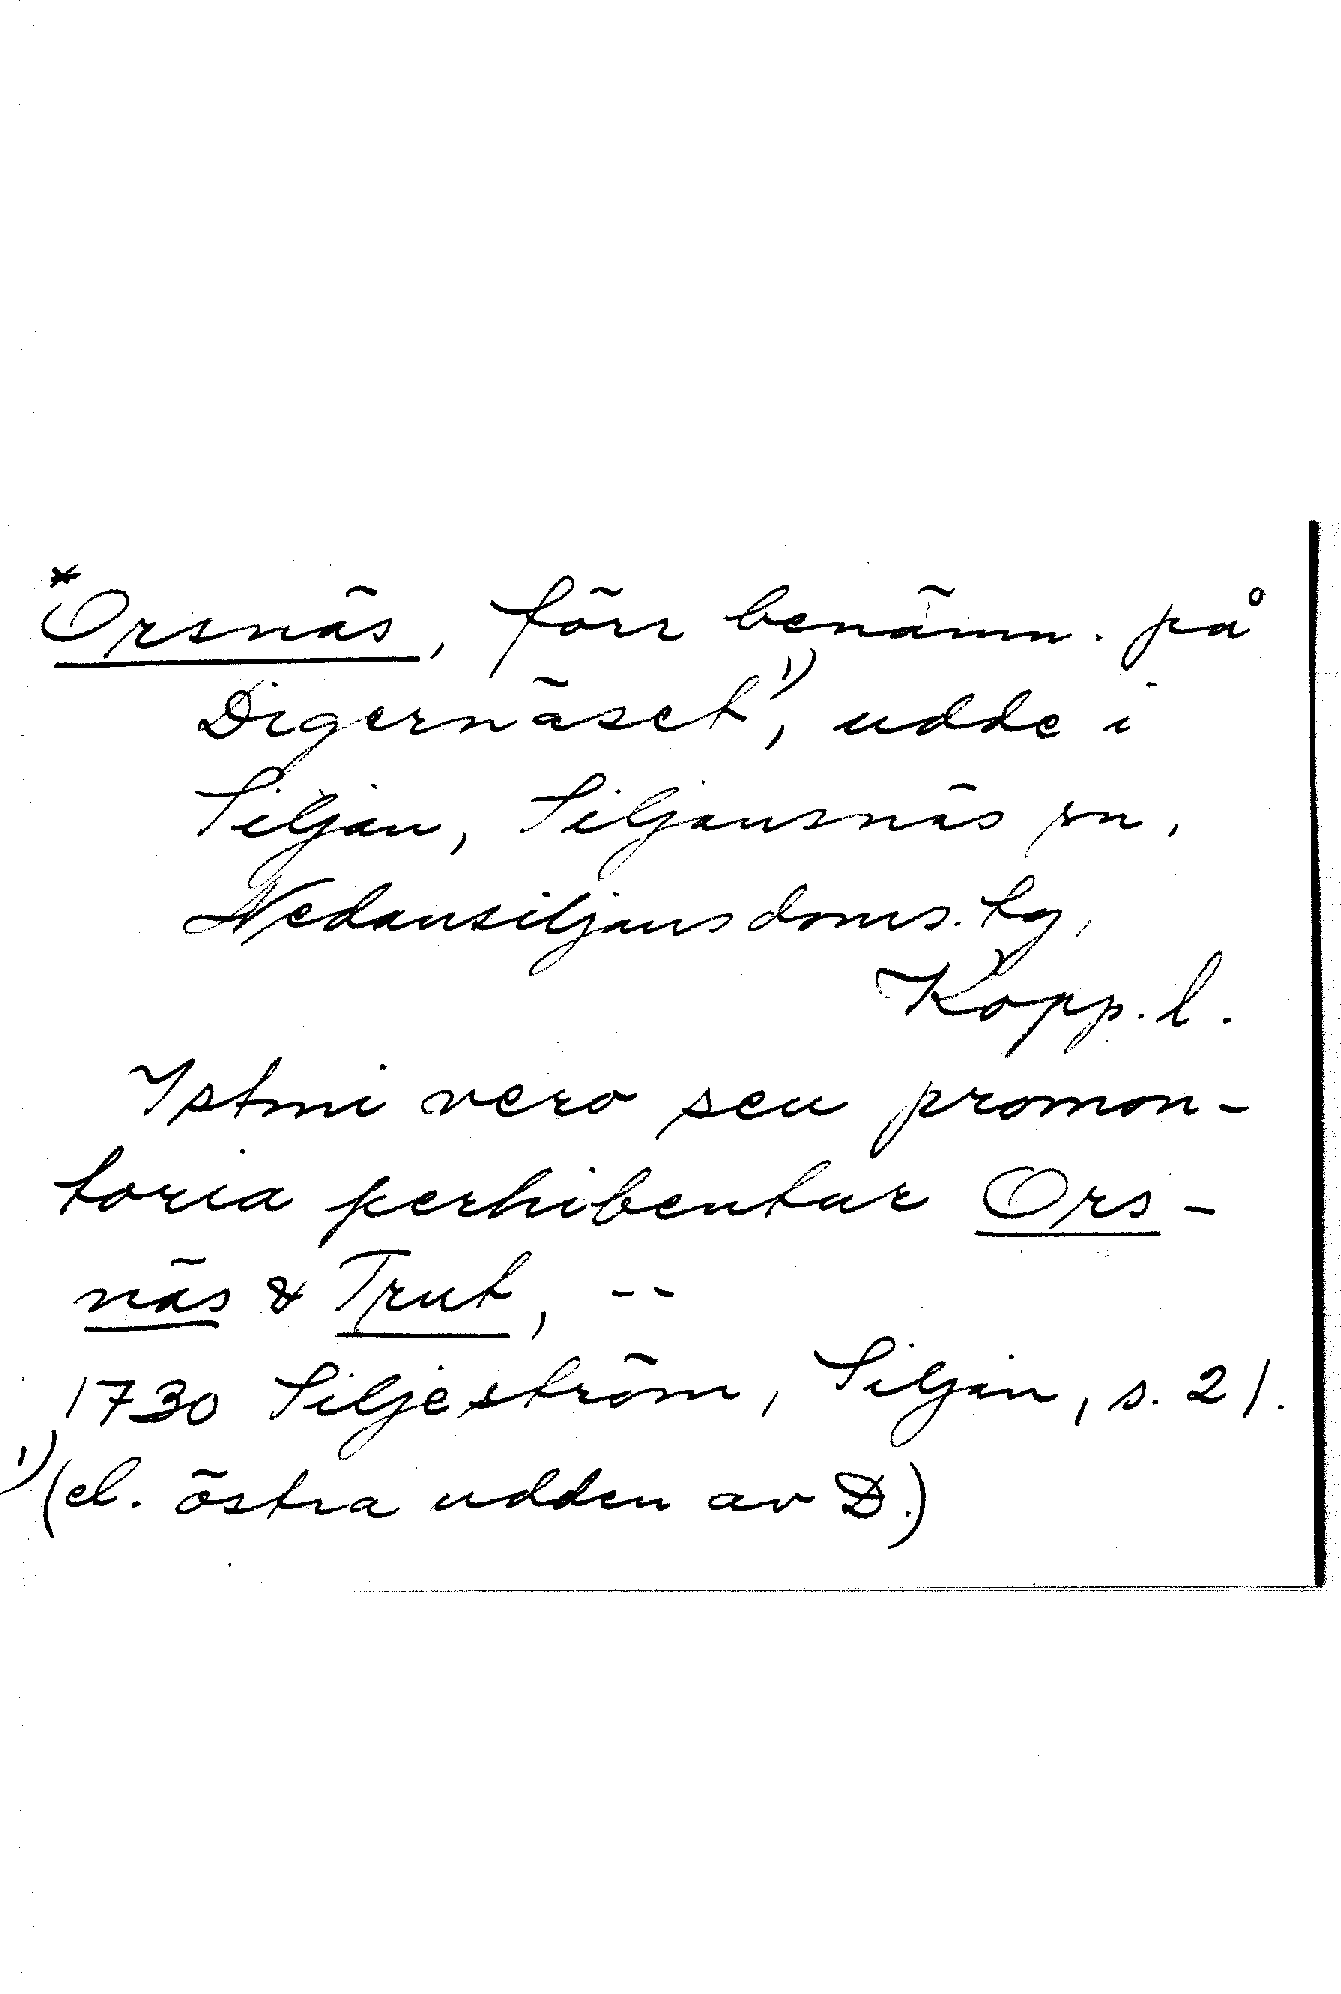 *Orsnäs, förr benämn. på
Digernäset¹⁾, udde i
Siljan, Siljansnäs sn,
Nedansiljans doms. tg,
Kopp. l.
Istmi vero seu promon-
toria perhibentur Ors-
näs & Trut, --
1730 Siljeström, Siljan, s. 21.
¹⁾(el. östra udden av D.)